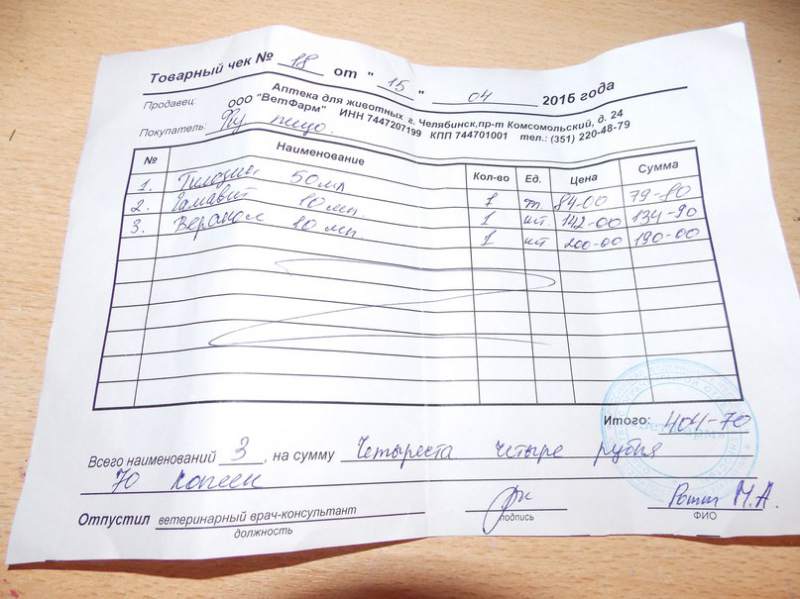 Товарный чек № 18 от "15" 04 2015 года
Продавец: Аптека для животных г. Челябинск,пр-т Комсомольский, д. 24
ООО "ВетФарм" ИНН 7447207199 КПП 744701001 тел.: (351) 220-48-79
Покупатель: Физ лицо.
№ Наименование Кол-во Ед. Цена Сумма
1. Тилозин 50мл 1 84-00 79-80
2. Гамавит 10мл. 1 шт. 142-00 134-90
3. Веракол 10мл. 1 шт 200-00 190-00
Итого: 404-70
Всего наименований 3, на сумму Четыреста четыре рубля
70 копеек
Отпустил ветеринарный врач-консультант М.А.
должность подпись ФИО